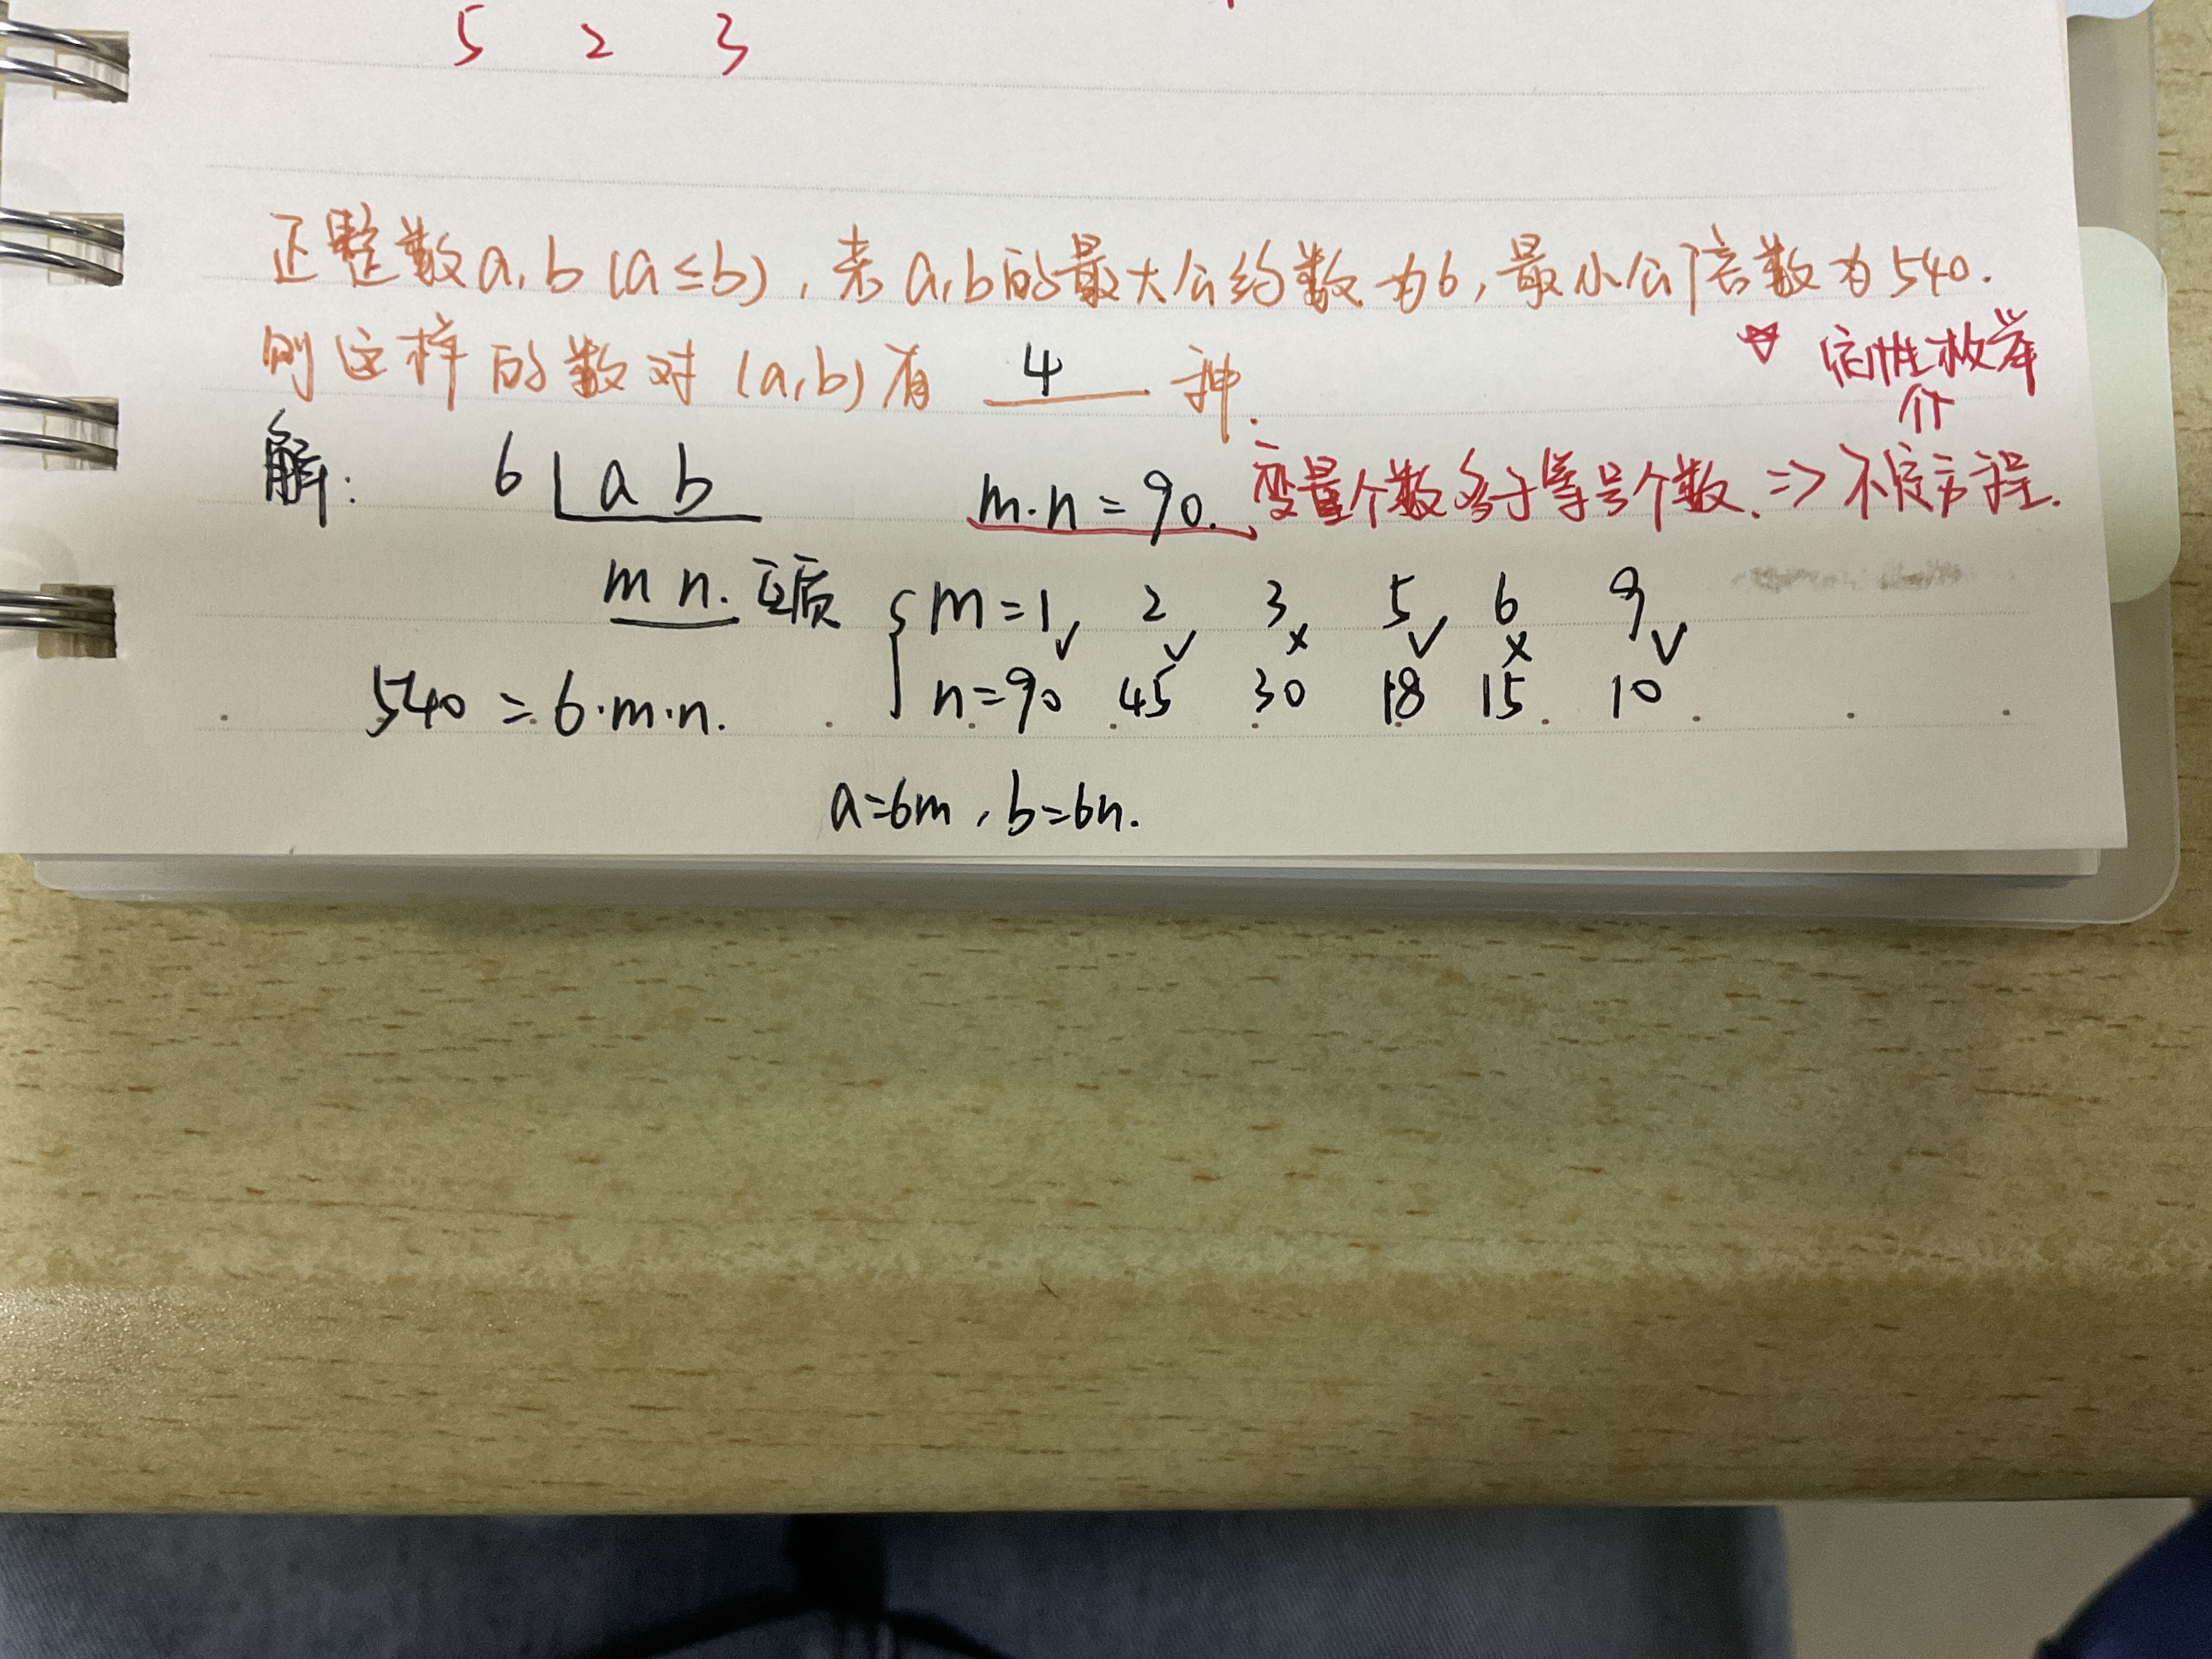 5 2 3
正整数a,b(a≤b),若a,b的最大公约数为6,最小公倍数为540.
则这样的数对(a,b)有 4 种.
☆ 定性枚举
⇑
解: 6 a b
m·n=90. 变量个数多于等号个数.⇒不定方程.
m n. 互质
m=1✓ 2✓ 3× 5✓ 6× 9✓
540=6·m·n.
n=90 45 30 18 15 10
a=6m,b=6n.